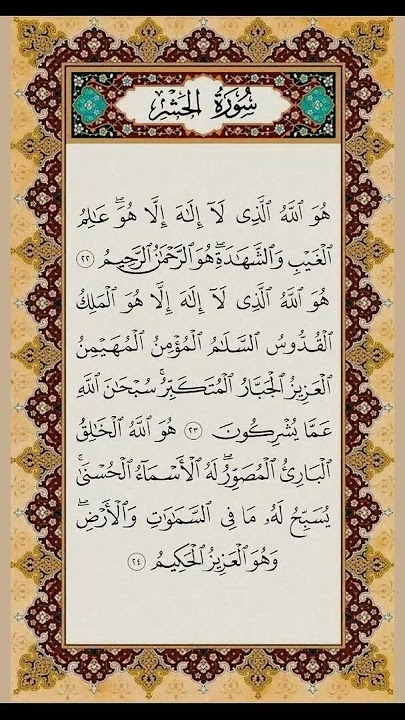 سُورَةُ الحَشْرِ
هُوَ ٱللَّهُ ٱلَّذِى لَآ إِلَٰهَ إِلَّا هُوَ ۖ عَٰلِمُ
ٱلْغَيْبِ وَٱلشَّهَٰدَةِ ۖ هُوَ ٱلرَّحْمَٰنُ ٱلرَّحِيمُ ٢٢
هُوَ ٱللَّهُ ٱلَّذِى لَآ إِلَٰهَ إِلَّا هُوَ ٱلْمَلِكُ
ٱلْقُدُّوسُ ٱلسَّلَٰمُ ٱلْمُؤْمِنُ ٱلْمُهَيْمِنُ
ٱلْعَزِيزُ ٱلْجَبَّارُ ٱلْمُتَكَبِّرُ ۚ سُبْحَٰنَ ٱللَّهِ
عَمَّا يُشْرِكُونَ ٢٣ هُوَ ٱللَّهُ ٱلْخَٰلِقُ
ٱلْبَارِئُ ٱلْمُصَوِّرُ ۖ لَهُ ٱلْأَسْمَآءُ ٱلْحُسْنَىٰ ۚ
يُسَبِّحُ لَهُۥ مَا فِى ٱلسَّمَٰوَٰتِ وَٱلْأَرْضِ ۖ
وَهُوَ ٱلْعَزِيزُ ٱلْحَكِيمُ ٢٤